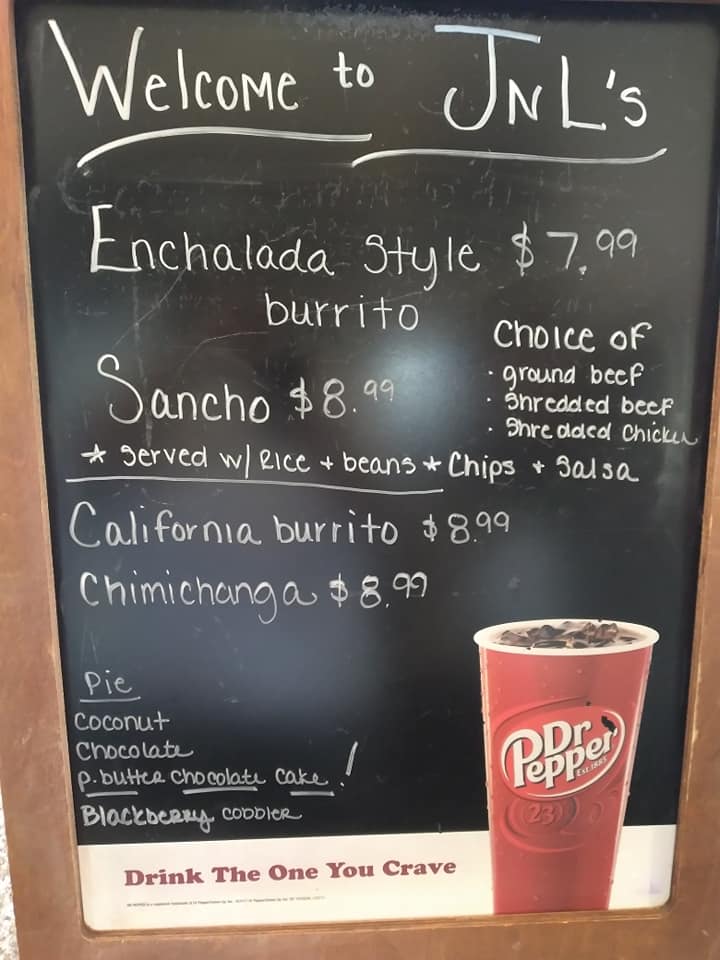 Welcome to JNL's
Enchalada Style $7.99
burrito
Choice of
· ground beef
· Shredded beef
· Shredded Chicken
Sancho $8.99
* Served w/ Rice + beans * Chips + Salsa
California burrito $8.99
Chimichanga $8.99
Pie
Coconut
Chocolate
p.butter chocolate cake!
Blackberry cobbler
Dr Pepper
Est. 1885
23
Drink The One You Crave